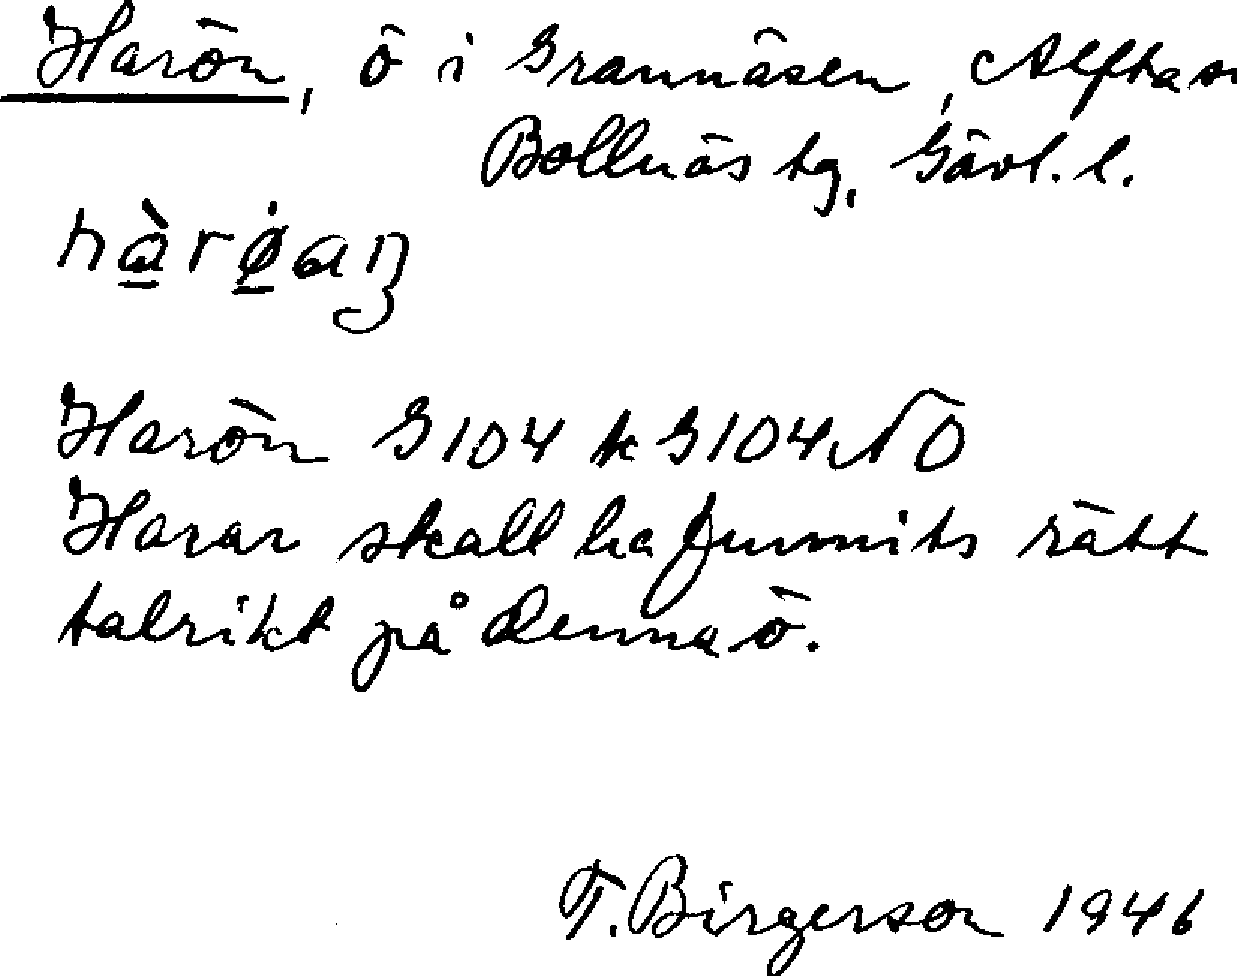 Harön, ö i Grannäsen, Alfta sn
Bollnäs tg, Gävl. l.
Harön G104 k G104 NO
Harar skall ha funnits rätt
talrikt på denna ö.
T. Birgerson 1946